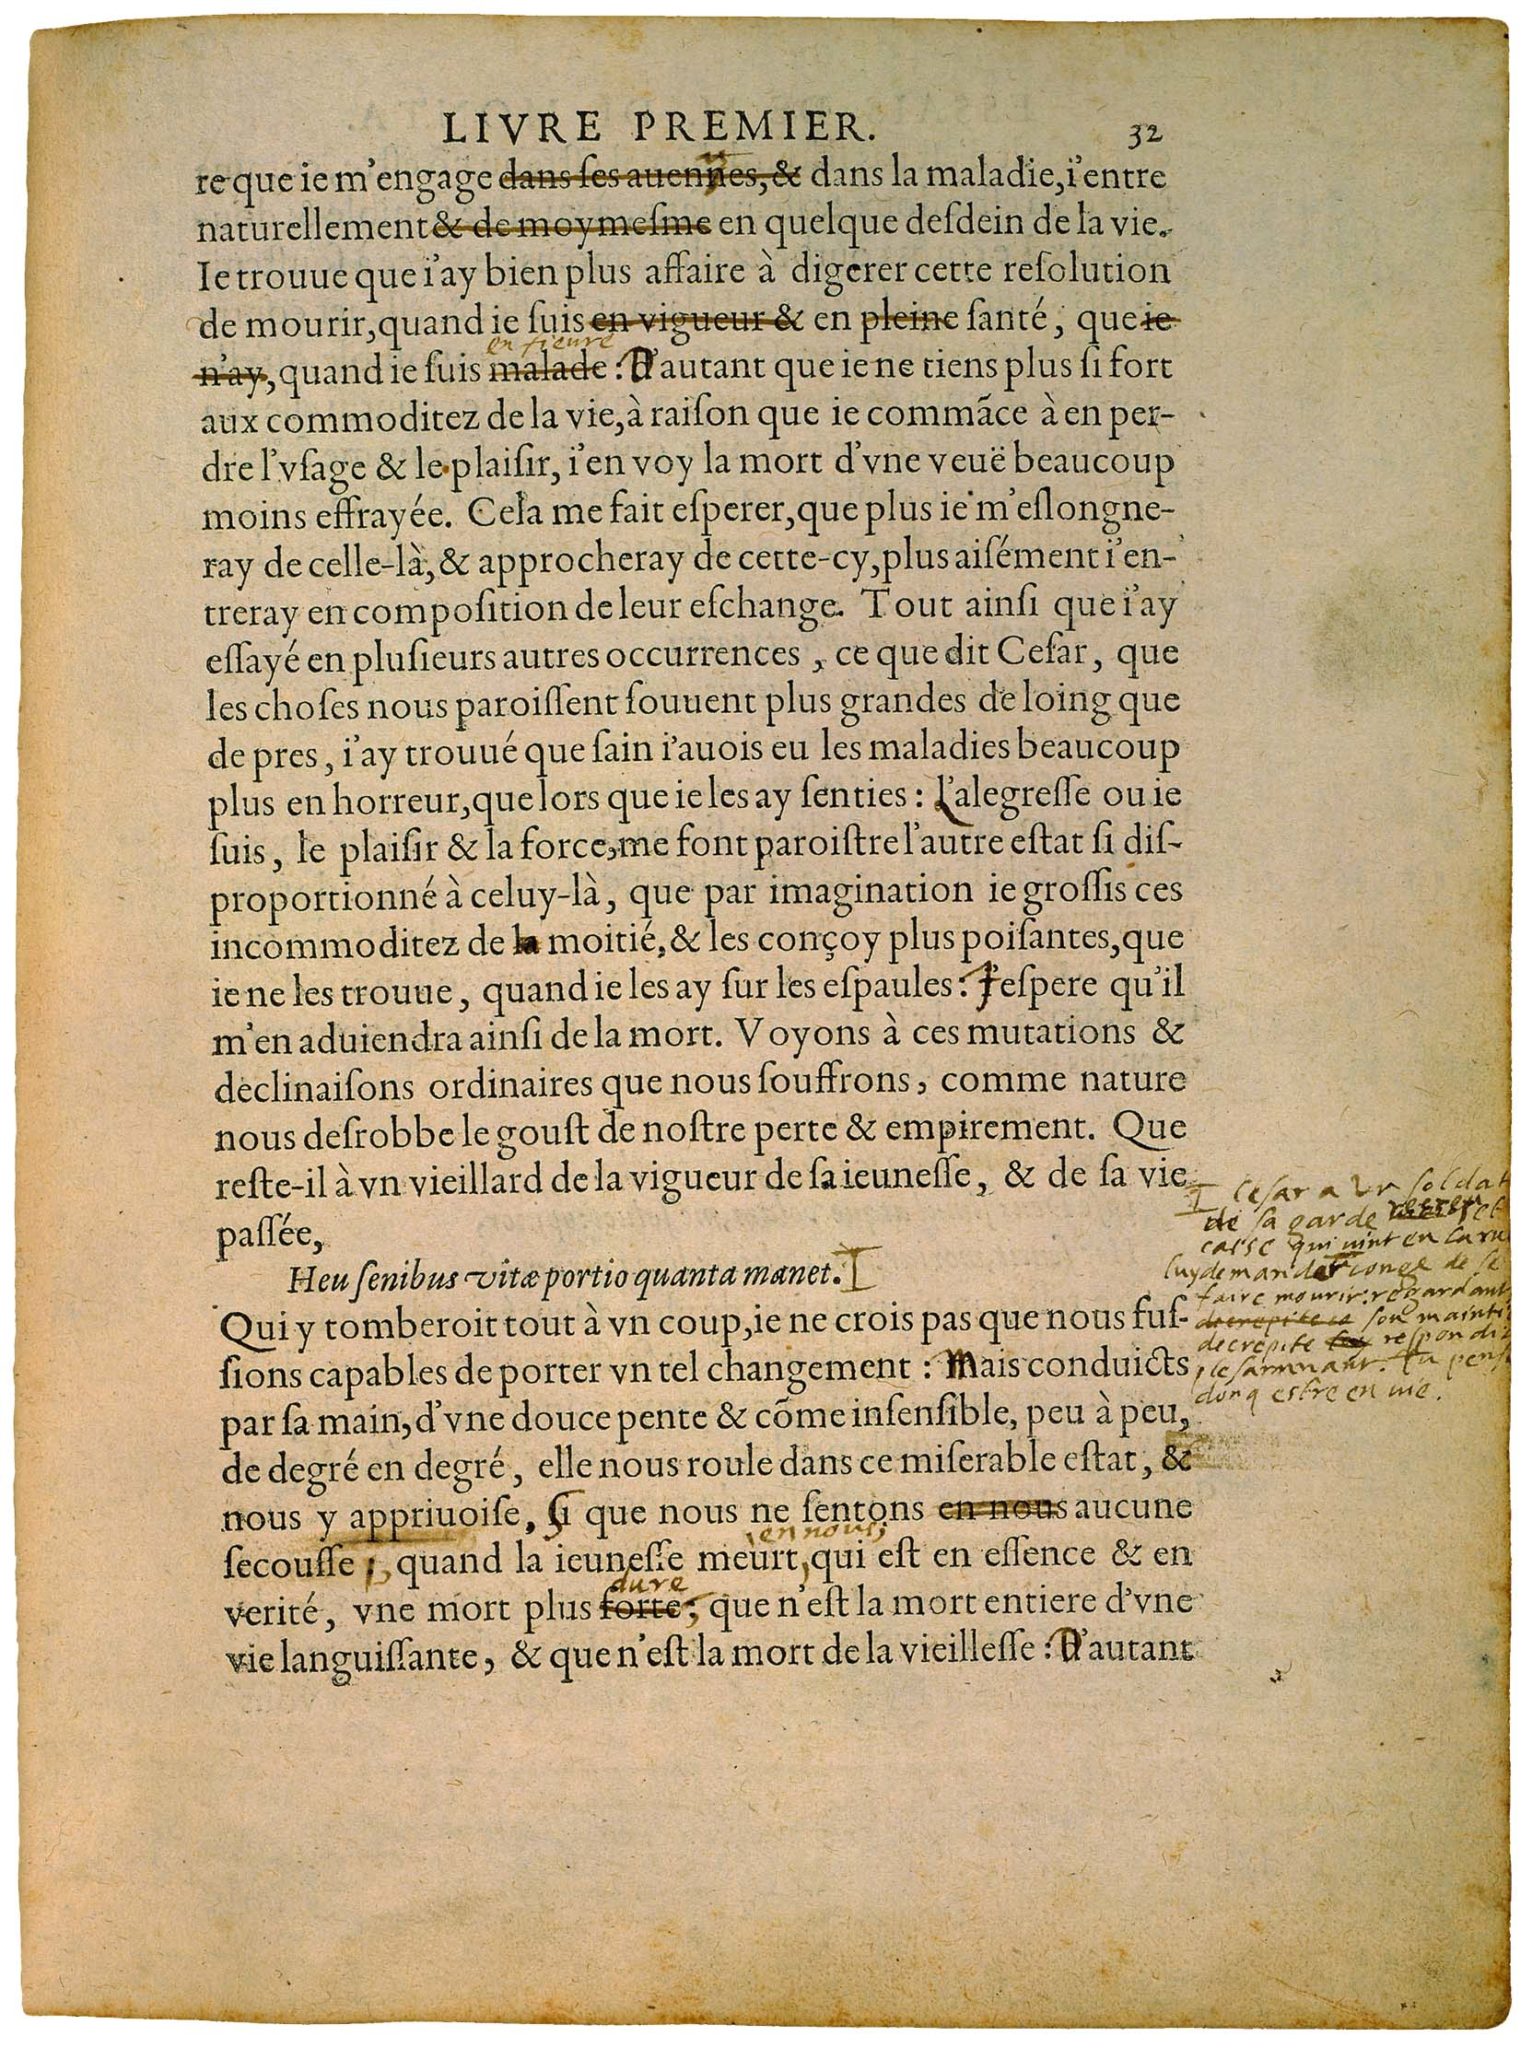 LIVRE PREMIER. 32
re que ie m'engage dans ses auennes, & dans la maladie, i'entre
naturellement & de moymeſme en quelque deſdein de la vie.
Ie trouue que i'ay bien plus affaire à digerer cette reſolution
de mourir, quand ie ſuis en vigueur & en pleine ſanté, que ie
en fieure
n'ay, quand ie ſuis malade : D'autant que ie ne tiens plus ſi fort
aux commoditez de la vie, à raiſon que ie commãce à en per-
dre l'vſage & le plaiſir, i'en voy la mort d'vne veuë beaucoup
moins effrayée. Cela me fait eſperer, que plus ie m'eſlongne-
ray de celle-là, & approcheray de cette-cy, plus aiſément i'en-
treray en compoſition de leur eſchange. Tout ainſi que i'ay
eſſayé en pluſieurs autres occurrences, ce que dit Ceſar, que
les choſes nous paroiſſent ſouuent plus grandes de loing que
de pres, i'ay trouué que ſain i'auois eu les maladies beaucoup
plus en horreur, que lors que ie les ay ſenties : L'alegreſſe ou ie
ſuis, le plaiſir & la force, me font paroiſtre l'autre eſtat ſi diſ-
proportionné à celuy-là, que par imagination ie groſſis ces
incommoditez de la moitié, & les conçoy plus poiſantes, que
ie ne les trouue, quand ie les ay ſur les eſpaules : J'eſpere qu'il
m'en aduiendra ainſi de la mort. Voyons à ces mutations &
declinaiſons ordinaires que nous ſouffrons, comme nature
nous deſrobbe le gouſt de noſtre perte & empirement. Que
reſte-il à vn vieillard de la vigueur de ſa ieuneſſe, & de ſa vie
paſſée,
Heu ſenibus vitæ portio quanta manet.
Qui y tomberoit tout à vn coup, ie ne crois pas que nous fuſ-
ſions capables de porter vn tel changement : Mais conduicts
par ſa main, d'vne douce pente & cõme inſenſible, peu à peu,
de degré en degré, elle nous roule dans ce miſerable eſtat, &
nous y appriuoiſe, Si que nous ne ſentons en nous aucune
en nous,
ſecouſſe, quand la ieuneſſe meurt, qui eſt en eſſence & en
dure
verité, vne mort plus forte, que n'eſt la mort entiere d'vne
vie languiſſante, & que n'eſt la mort de la vieilleſſe : D'autant
Cesar a un soldat
de sa garde et
casse qui vint en la ru
luy demander conge de se
faire mourir: regardant
decrepite son mainti
decrepite respondit
plesammant. Tu pens
donq estre en vie.